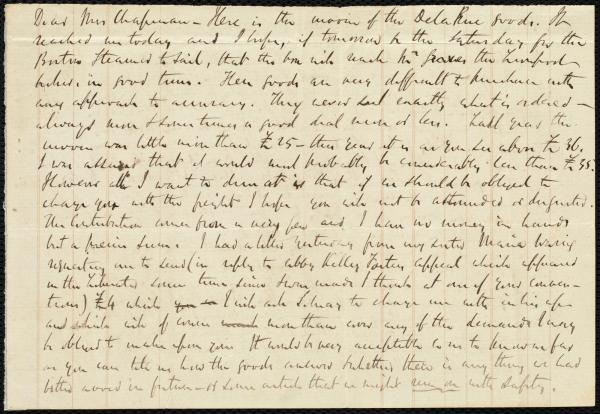 Dear Mrs Chapman - Here is the invoice of the DelaRue goods. It
reached me today and I hope, if tomorrow be the Saturday for the
Boston Steamer to Sail, that this box will reach the Liverpool
in good time. These goods are very difficult to purchase with
any approach to accuracy. They never send exactly what is ordered -
always more & sometimes a good deal more or less. Last year the
invoice was little more than £25 - this year it is as you see above £36.
I was assured that it would most probably be considerably less than £35.
However all I want to is that if we should be obliged to
charge you with the freight I hope you will not be astounded or disgusted.
The Contributions come from a very few and I have no money in hands
but a few I had a letter yesterday from my sister Maria Waring
requesting me to send (in reply to Abby Kelley Fosters appeal which appeared
in the Liberator some time since made I think at one of your conven-
tions) £4 which I will ask S. May to charge me with in his a/c
and which will of course more than cover any of the demands I may
be obliged to make upon you. It would be very acceptable to us to know as far
as you can tell us how the goods answer & whether there is any thing we had
better avoid in future - or some article that we might rely on with safety.